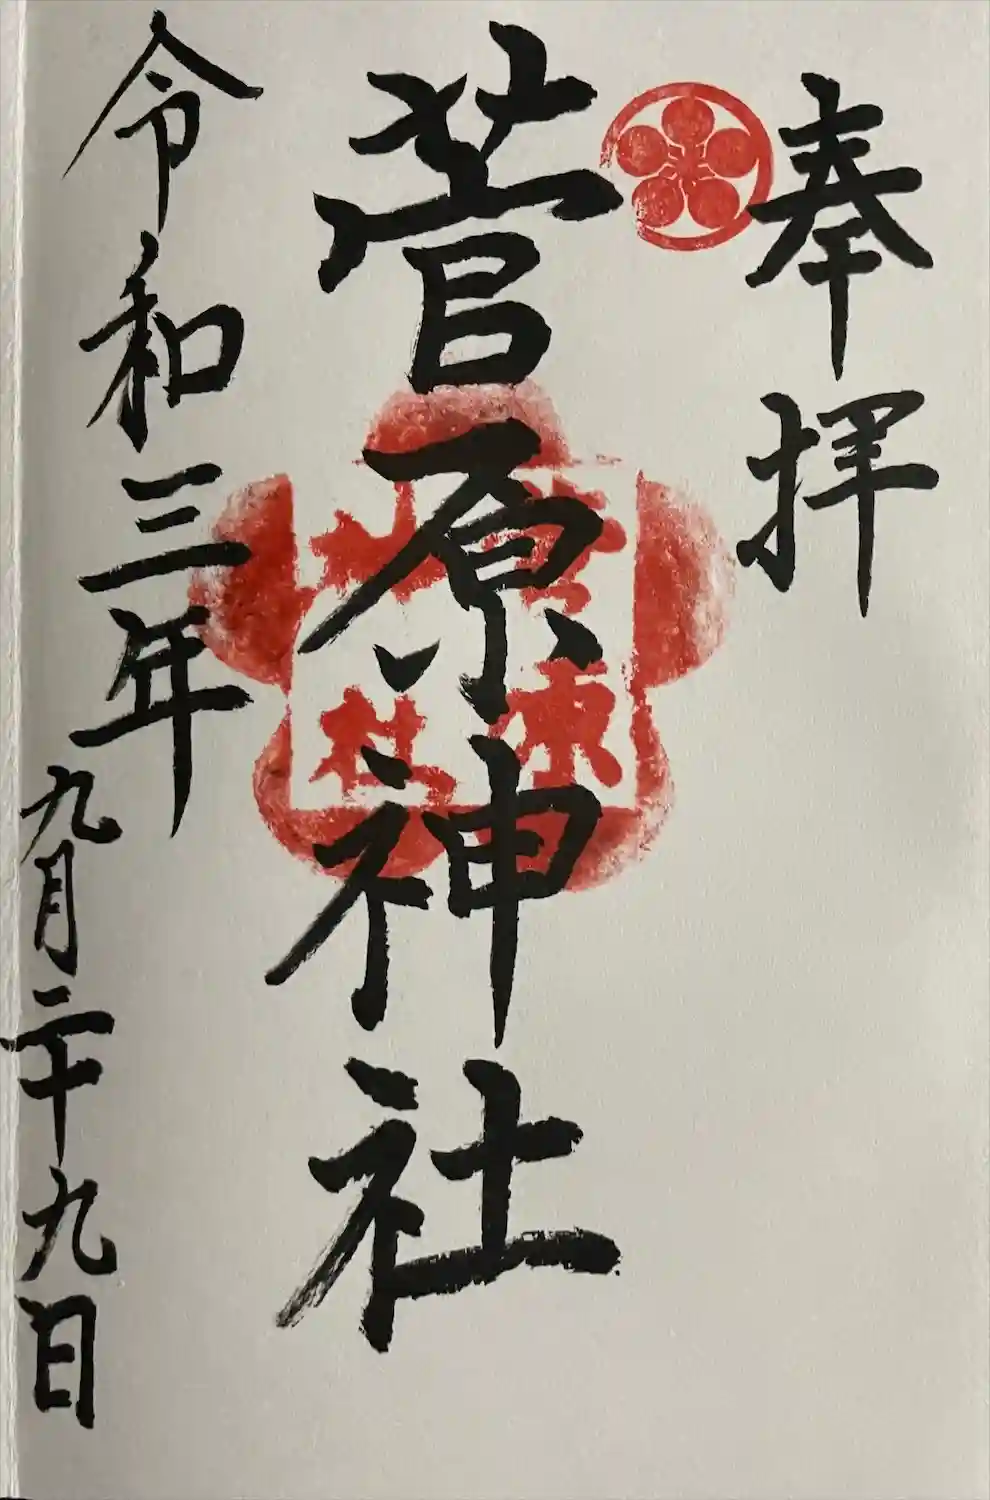 奉拝
菅原神社
令和三年
九月二十九日
菅原
神社